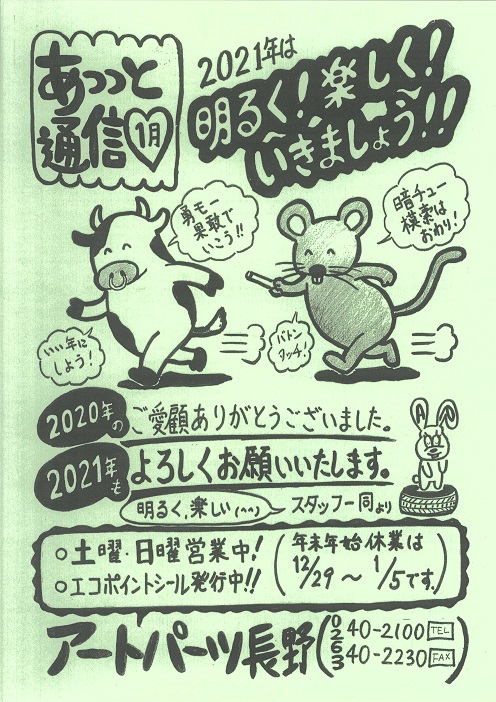 あっっと
通信
1月
2021年は
明るく!楽しく!
いきましょう!!
勇モー
果敢で
いこう!!
暗チュー
模索は
おわり!
いい年に
しよう!
バトン
タッチ!
2020年の
ご愛顧ありがとうございました。
2021年も
よろしくお願いいたします。
明るく、楽しい(^^)
スタッフ一同より
○土曜・日曜営業中!
○エコポイントシール発行中!!
(年末年始休業は
12/29〜1/5です。)
アートパーツ長野
(0263 40-2100 TEL
40-2230 FAX)